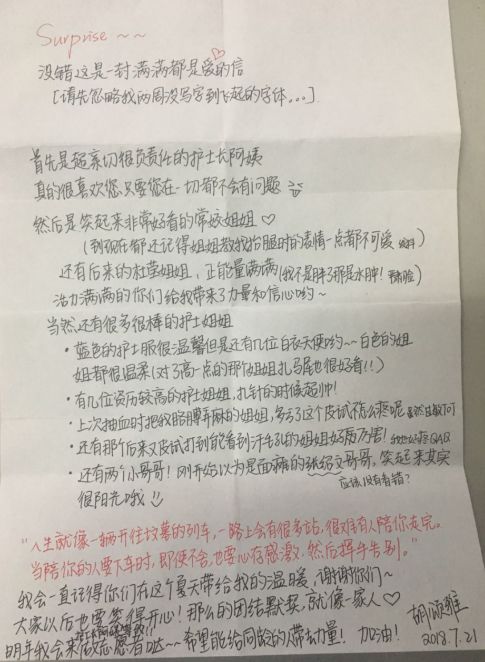 Surprise ~~
没错这是一封满满都是爱的信♡
[请先忽略我两周没写字到飞起的字体...]
首先是超亲切很负责任的护士长阿姨
真的很喜欢您只要您在一切都不会有问题
然后是笑起来非常好看的常姣姐姐♡
(到现在都还记得姐姐教我抬腿时的表情一点都不可爱)
还有后来的杜莹姐姐,正能量满满(我不是胖了那是水肿!)
活力满满的你们给我带来了力量和信心哟~
当然还有很多很棒的护士姐姐
·蓝色的护士服很温馨但是还有几位白衣天使哟~~白色的姐
姐都很温柔(对了高一点的那个姐姐扎马尾也很好看!!)
·有几位资历较高的护士姐姐,扎针的时候超帅!
·上次抽血时把我胳膊弄麻的姐姐,多亏了这个皮试不怎么疼呢
·还有那个后来又皮试打到能看到汗毛孔的姐姐好厉害!QAQ
·还有两个小哥哥!刚开始以为是面瘫的张绍文哥哥,笑起来其实
很阳光哦!!
应该没有看错?
"人生就像一辆开往坟墓的列车,一路上会有很多站,很难有人陪你走完。
当陪你的人要下车时,即使不舍,也要心存感激,然后挥手告别。"
我会一直记得你们在这个夏天带给我的温暖,谢谢你们~
大家以后也要笑得开心!那么的团结默契,就像一家人♡
明年我会来做志愿者哒~~希望能给同龄的带动量!加油!
2018.7.21